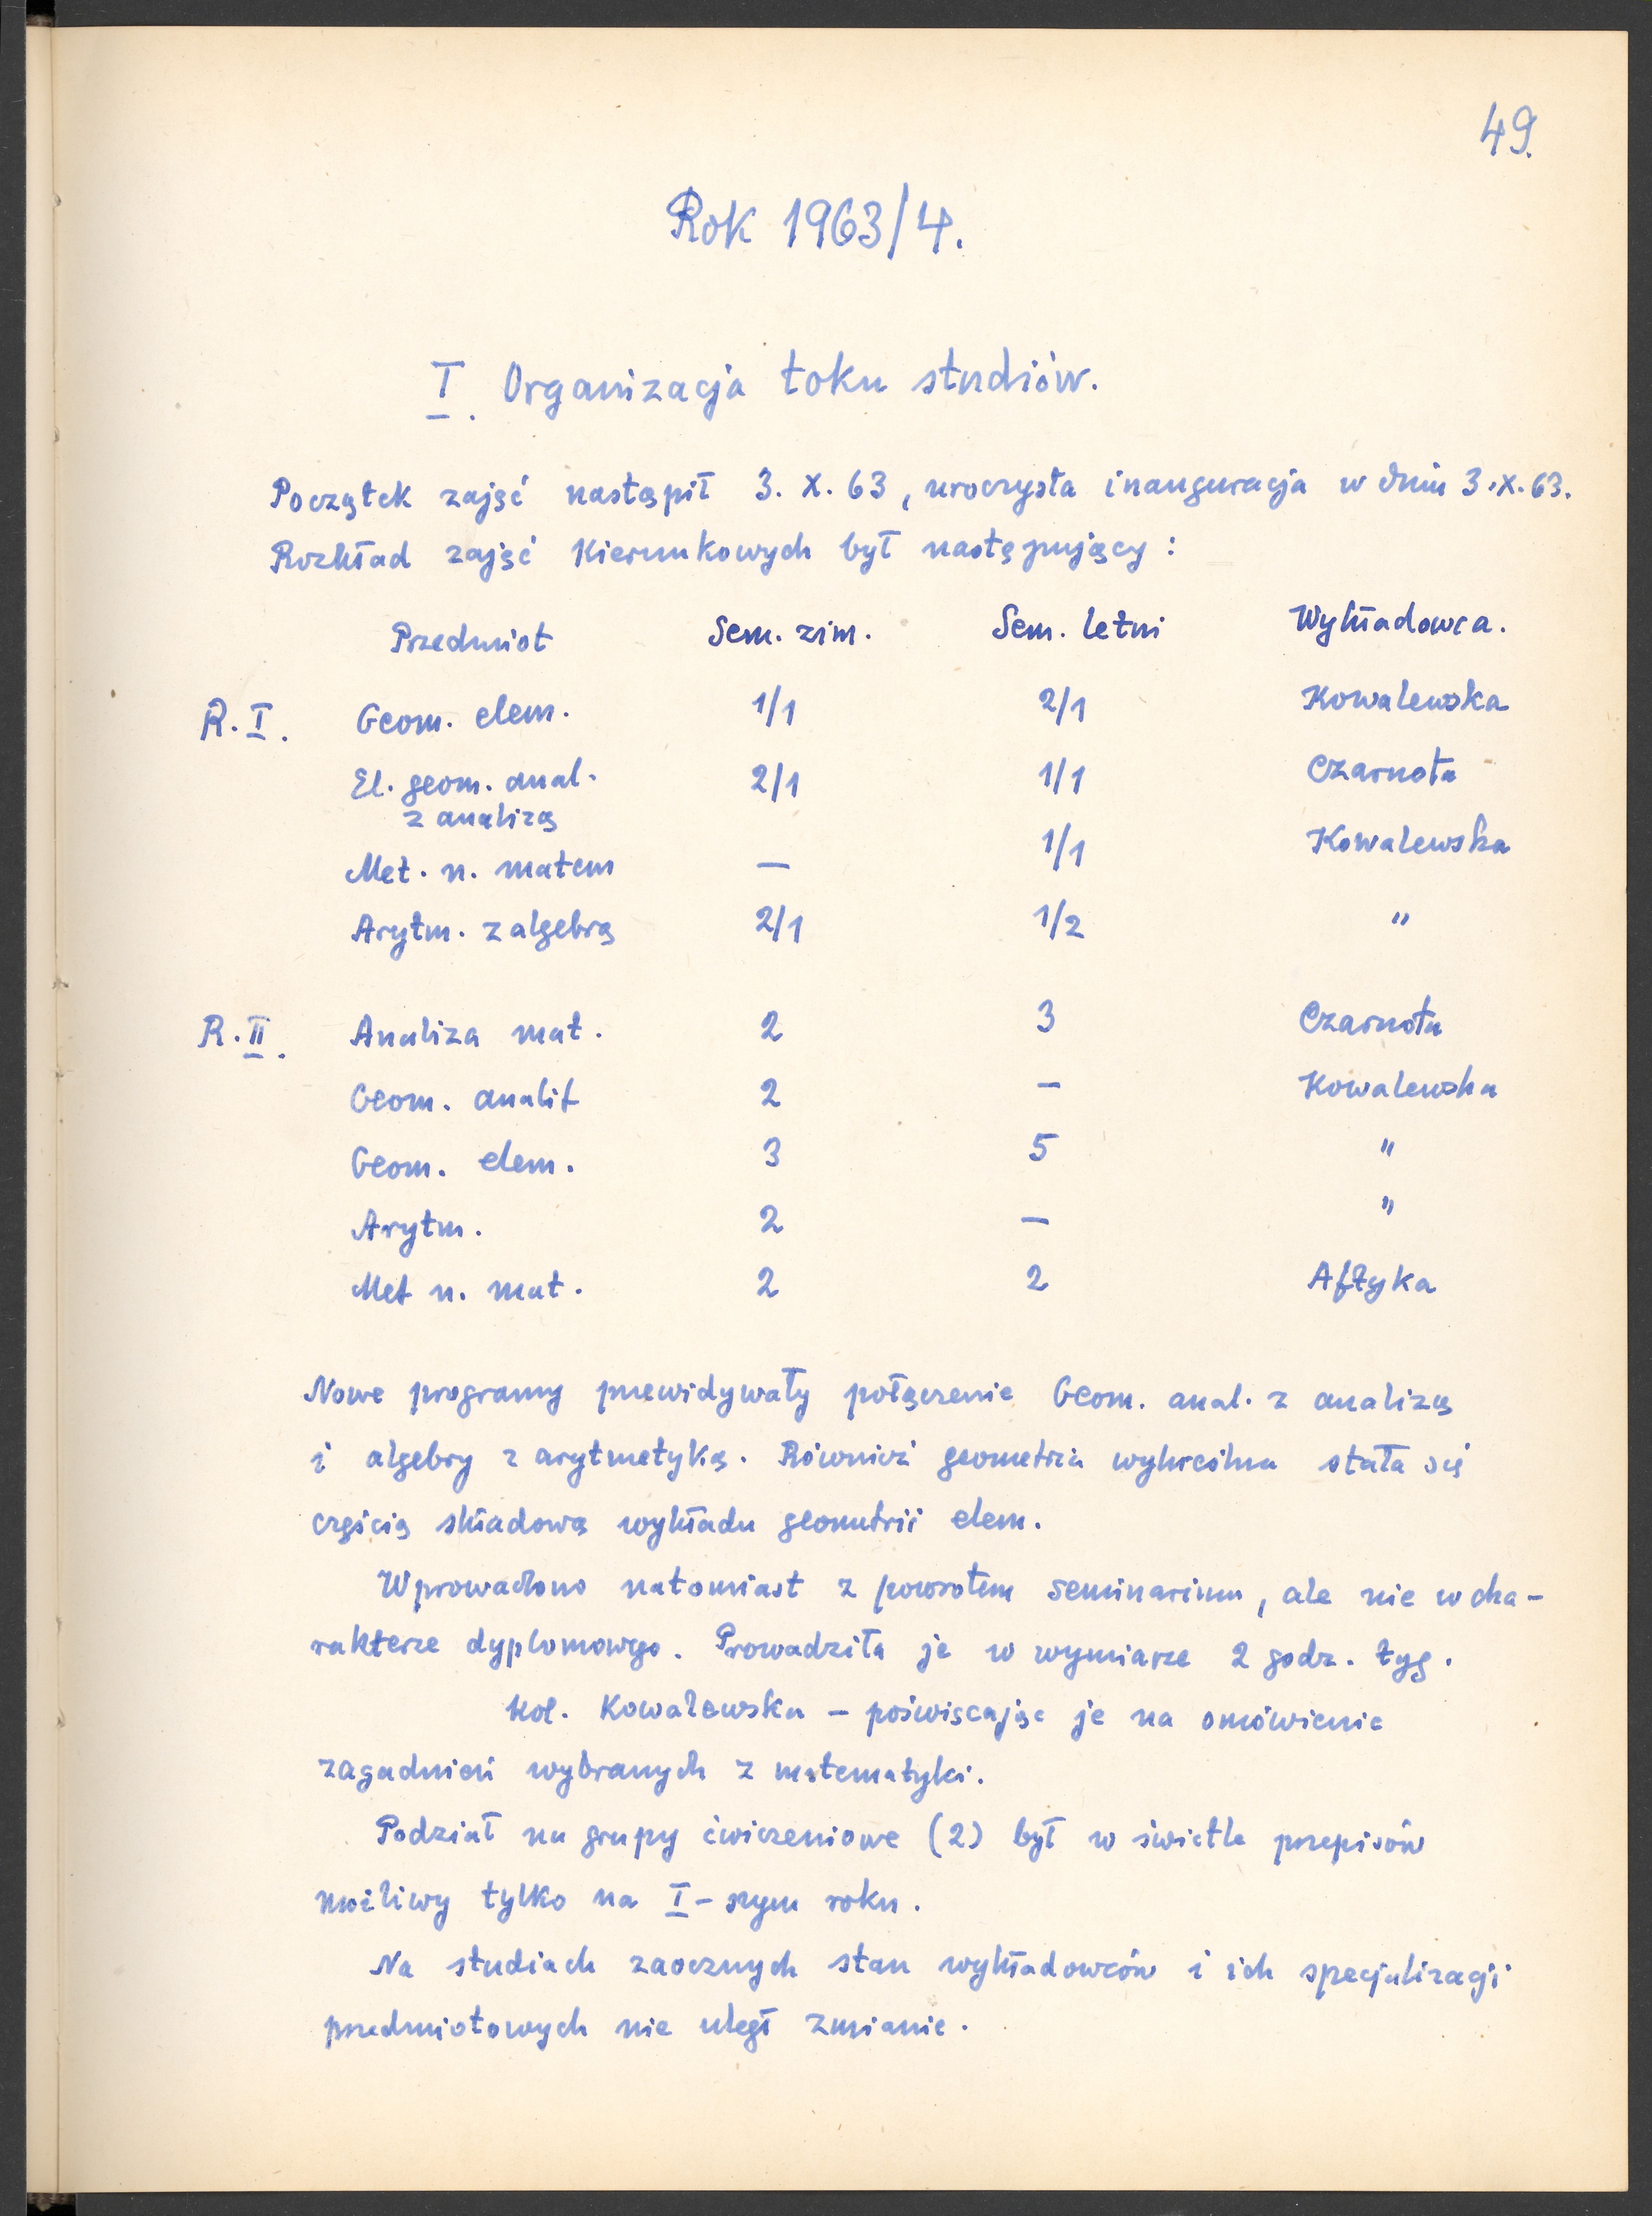 49.
Rok 1963/4.
I. Organizacja toku studiów.
Początek zajęć nastąpił 3. X. 63, uroczysta inauguracja w dniu 3.X.63.
Rozkład zajęć kierunkowych był następujący:
Przedmiot Sem. zim. Sem. letni Wykładowca.
R.I. Geom. elem. 1/1 2/1 Kowalewska
El. geom. anal. 2/1 1/1 Czarnota
z analizą
Met. n. matem — 1/1 Kowalewska
Arytm. z algebrą 2/1 1/2 "
R.II. Analiza mat. 2 3 Czarnota
Geom. analit 2 — Kowalewska
Geom. elem. 3 5 "
Arytm. 2 — "
Met n. mat. 2 2 Aftyka
Nowe programy przewidywały połączenie Geom. anal. z analizą
i algebry z arytmetyką. Również geometria wykreślna stała się
częścią składową wykładu geometrii elem.
Wprowadzono natomiast z powrotem seminarium, ale nie w cha-
rakterze dyplomowego. Prowadziła je w wymiarze 2 godz. tyg.
kol. Kowalewska – poświęcając je na omówienie
zagadnień wybranych z matematyki.
Podział na grupy ćwiczeniowe (2) był w świetle przepisów
możliwy tylko na I-szym roku.
Na studiach zaocznych stan wykładowców i ich specjalizacji
przedmiotowych nie uległ zmianie.